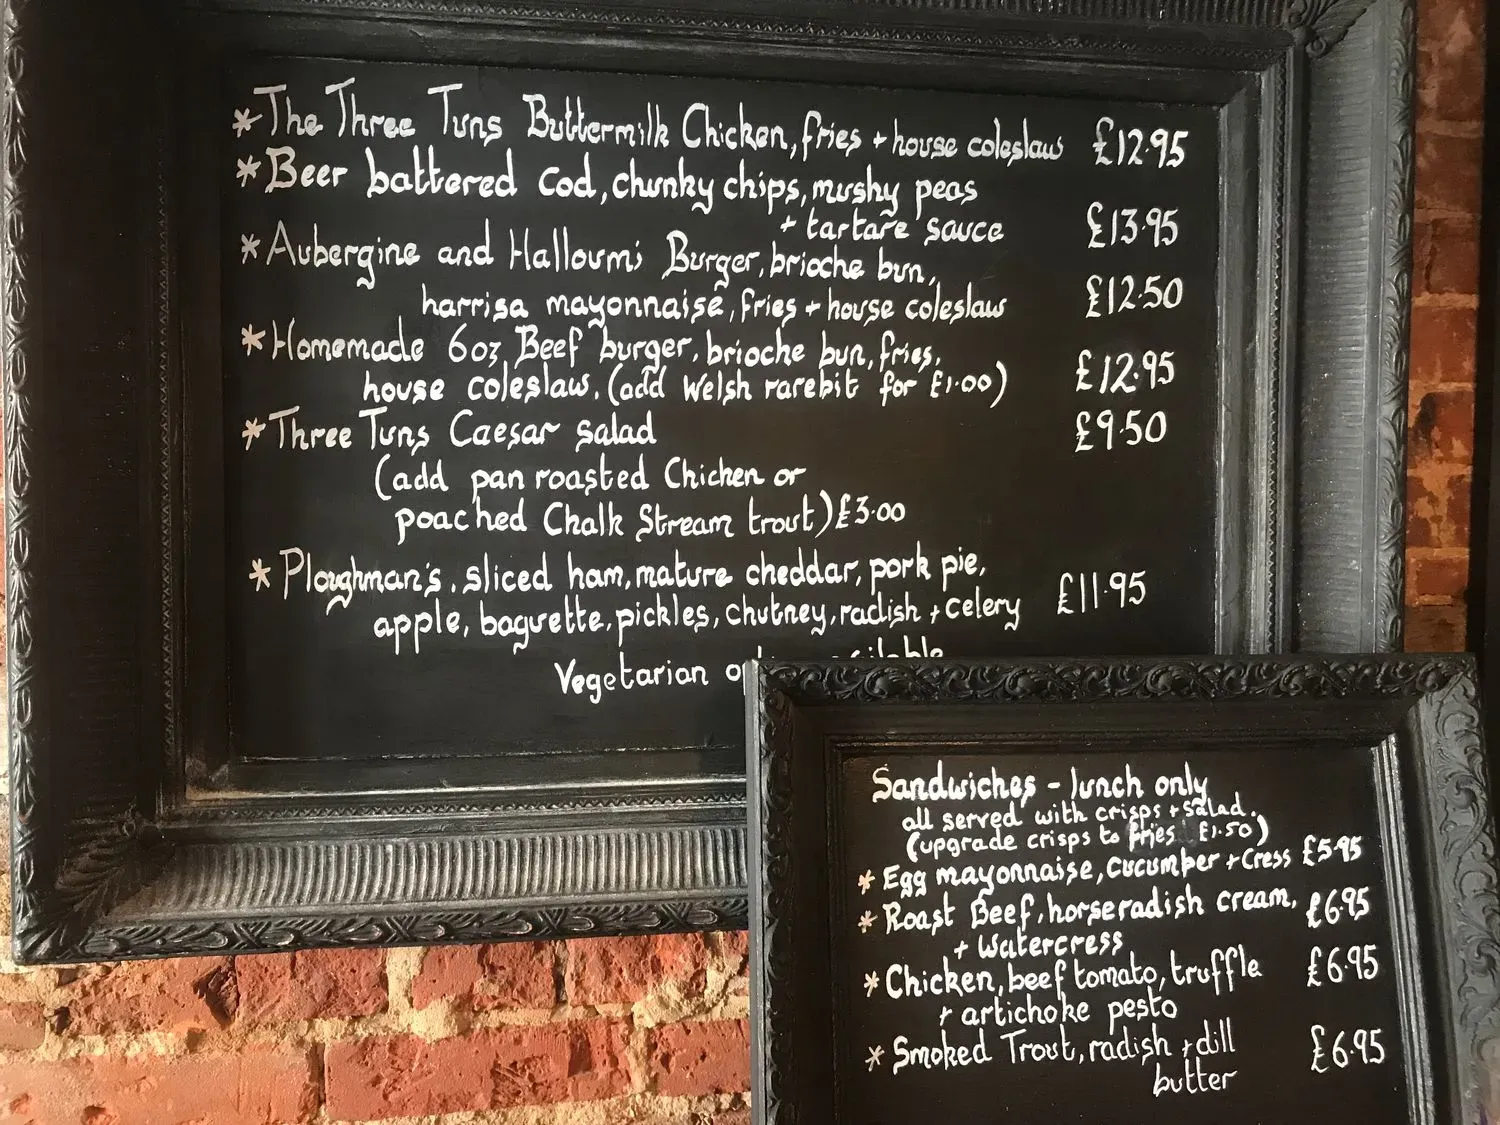 *The Three Tuns Buttermilk Chicken, fries + house coleslaw £12.95
*Beer battered Cod, chunky chips, mushy peas
+ tartare sauce £13.95
*Aubergine and Halloumi Burger, brioche bun,
harrisa mayonnaise, fries + house coleslaw £12.50
*Homemade 6oz Beef burger, brioche bun, fries,
house coleslaw. (add Welsh rarebit for £1.00) £12.95
*Three Tuns Caesar Salad £9.50
(add pan roasted Chicken or
poached Chalk Stream trout) £3.00
*Ploughman's, sliced ham, mature cheddar, pork pie,
apple, baguette, pickles, chutney, radish + celery £11.95
Vegetarian
Sandwiches - lunch only
all served with crisps + salad.
(upgrade crisps to fries £1.50)
*Egg mayonnaise, cucumber + cress £5.95
*Roast Beef, horseradish cream, £6.95
+ watercress
*Chicken, beef tomato, truffle £6.95
+ artichoke pesto
*Smoked Trout, radish + dill £6.95
butter